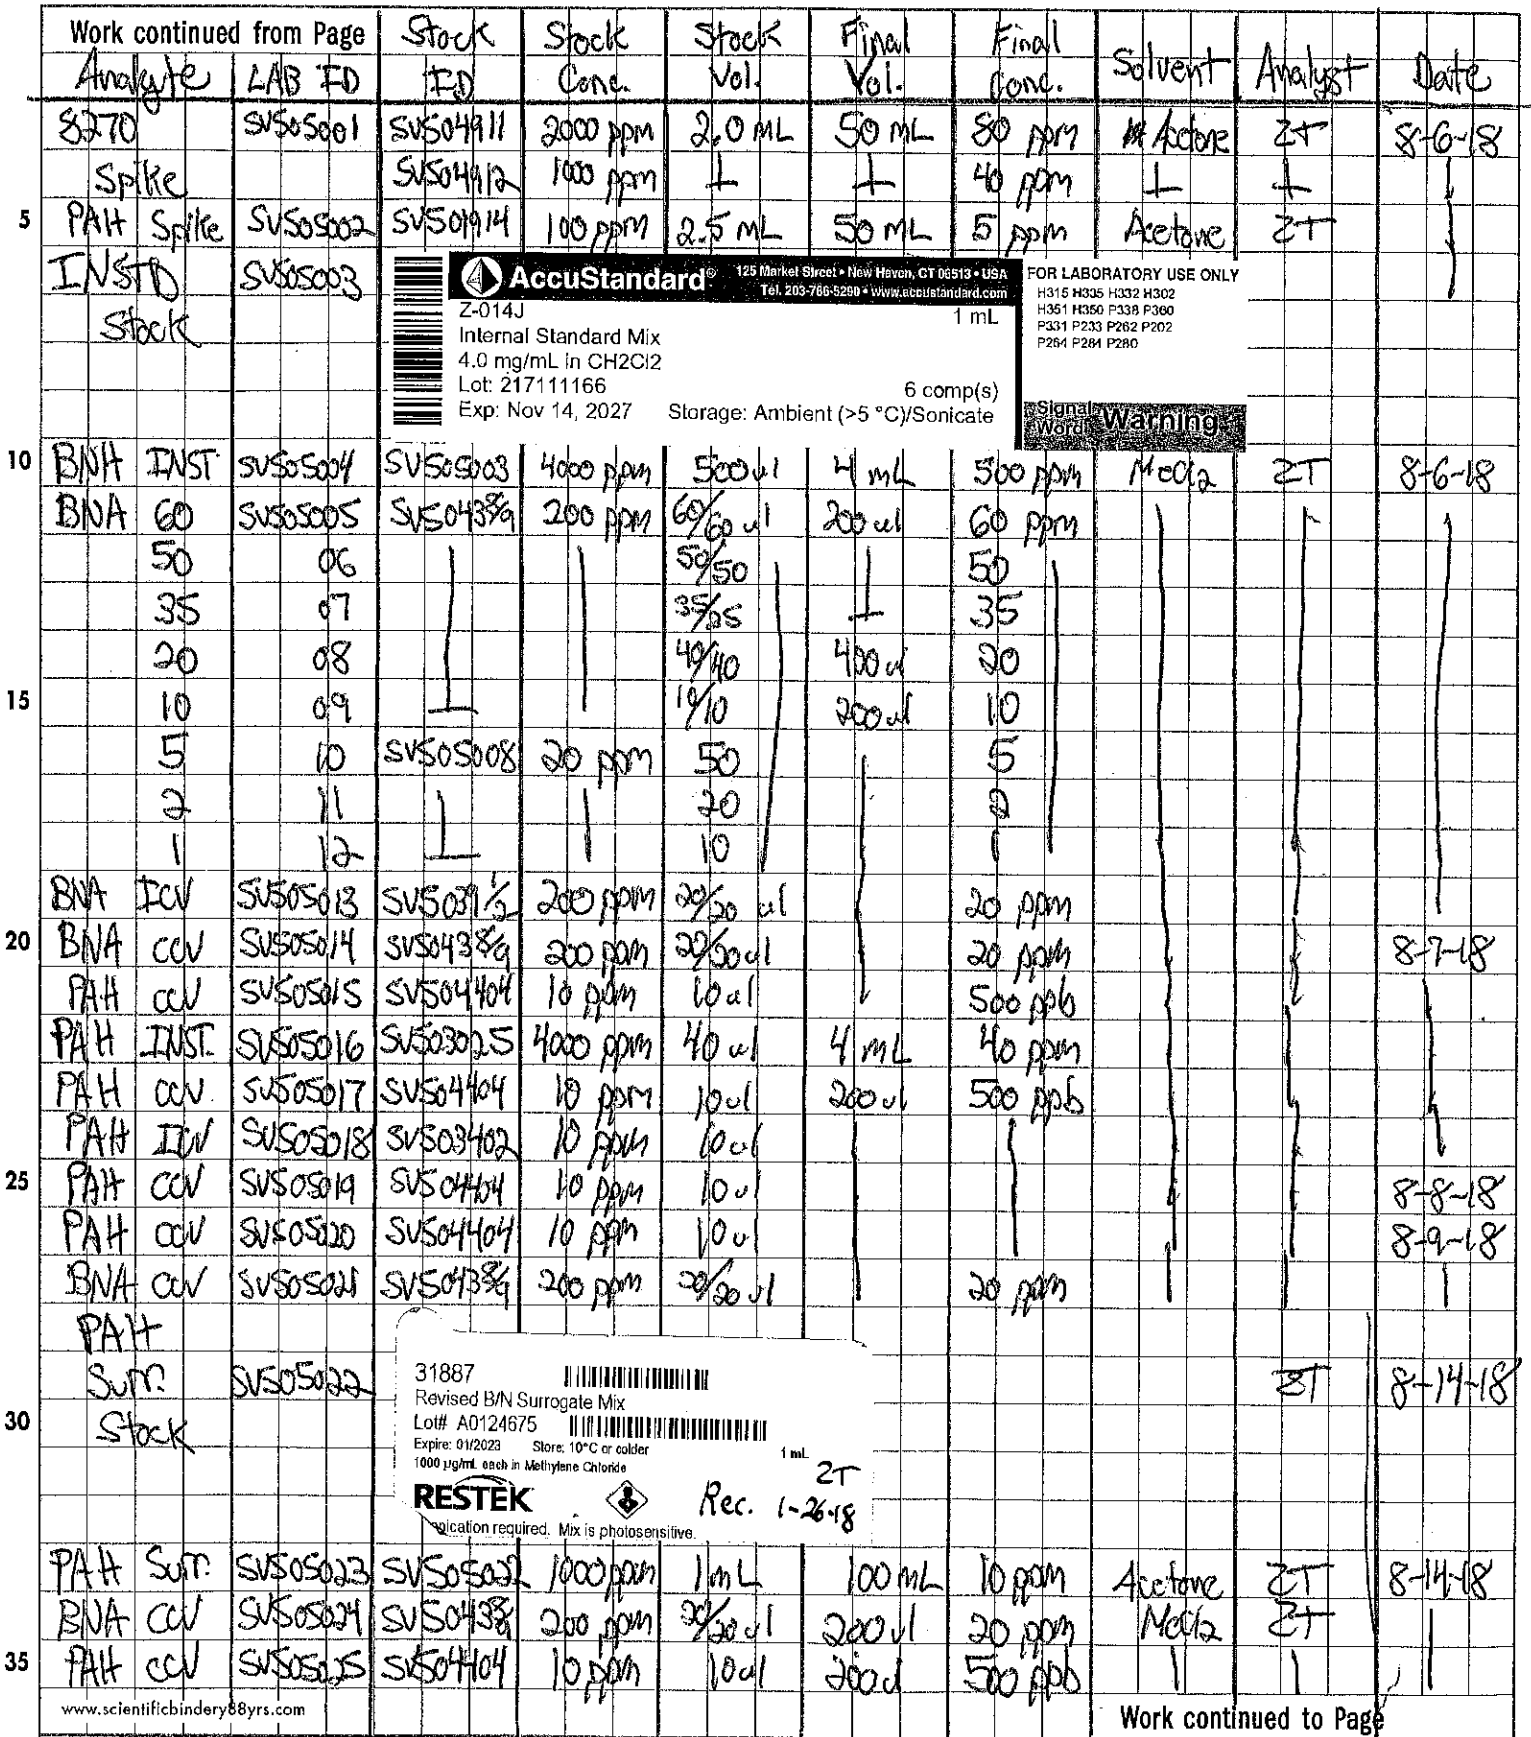 Work continued from Page Stock Stock Stock Final Final Solvent Analyst Date
Analyte LAB ID ID Conc. Vol. Vol. Conc.
8270 SVS05001 SVS04911 2000 ppm 2.0 mL 50 mL 80 ppm Acetone ZT 8-6-18
Spike SVS04912 1000 ppm 40 ppm
5 PAH Spike SVS05002 SVS04914 100 ppm 2.5 mL 50 mL 5 ppm Acetone ZT
INSTD SVS05003
Stock
AccuStandard®
125 Market Street • New Haven, CT 06513 • USA
Tel. 203-786-5290 • www.accustandard.com
Z-014J 1 mL
Internal Standard Mix
4.0 mg/mL in CH2Cl2
Lot: 217111166 6 comp(s)
Exp: Nov 14, 2027 Storage: Ambient (>5 °C)/Sonicate
FOR LABORATORY USE ONLY
H315 H335 H332 H302
H351 H350 P338 P360
P331 P233 P262 P202
P264 P284 P280
Signal Word Warning
10 BNA INST. SVS05004 SVS05003 4000 ppm 500 ul 4 mL 500 ppm MeCl2 ZT 8-6-18
BNA 60 SVS05005 SVS0438/9 200 ppm 60/60 ul 200 ul 60 ppm
50 06 50/50 50
35 07 35/35 35
20 08 40/40 400 ul 20
15 10 09 10/10 200 ul 10
5 10 SVS05008 20 ppm 50 5
2 11 20 2
1 12 10 1
BNA ICV SVS05013 SVS0391/2 200 ppm 20/20 ul 20 ppm
20 BNA CCV SVS05014 SVS0438/9 200 ppm 20/20 ul 20 ppm 8-7-18
PAH CCV SVS05015 SVS04404 10 ppm 10 ul 500 ppb
PAH INST. SVS05016 SVS03025 4000 ppm 40 ul 4 mL 40 ppm
PAH CCV SVS05017 SVS04404 10 ppm 10 ul 200 ul 500 ppb
PAH ICV SVS05018 SVS03402 10 ppm 10 ul
25 PAH CCV SVS05019 SVS04404 10 ppm 10 ul 8-8-18
PAH CCV SVS05020 SVS04404 10 ppm 10 ul 8-9-18
BNA CCV SVS05021 SVS0438/9 200 ppm 20/20 ul 20 ppm
PAH
Surr. SVS05022 ZT 8-14-18
30 Stock
31887
Revised B/N Surrogate Mix
Lot# A0124675
Expire: 01/2023 Store: 10°C or colder
1000 µg/mL each in Methylene Chloride 1 mL
RESTEK
ZT
Rec. 1-26-18
ication required. Mix is photosensitive.
PAH Surr. SVS05023 SVS05022 1000 ppm 1 mL 100 mL 10 ppm Acetone ZT 8-14-18
BNA CCV SVS05024 SVS0438/9 200 ppm 20/20 ul 200 ul 20 ppm MeCl2 ZT
35 PAH CCV SVS05025 SVS04404 10 ppm 10 ul 200 ul 500 ppb
www.scientificbindery88yrs.com Work continued to Page